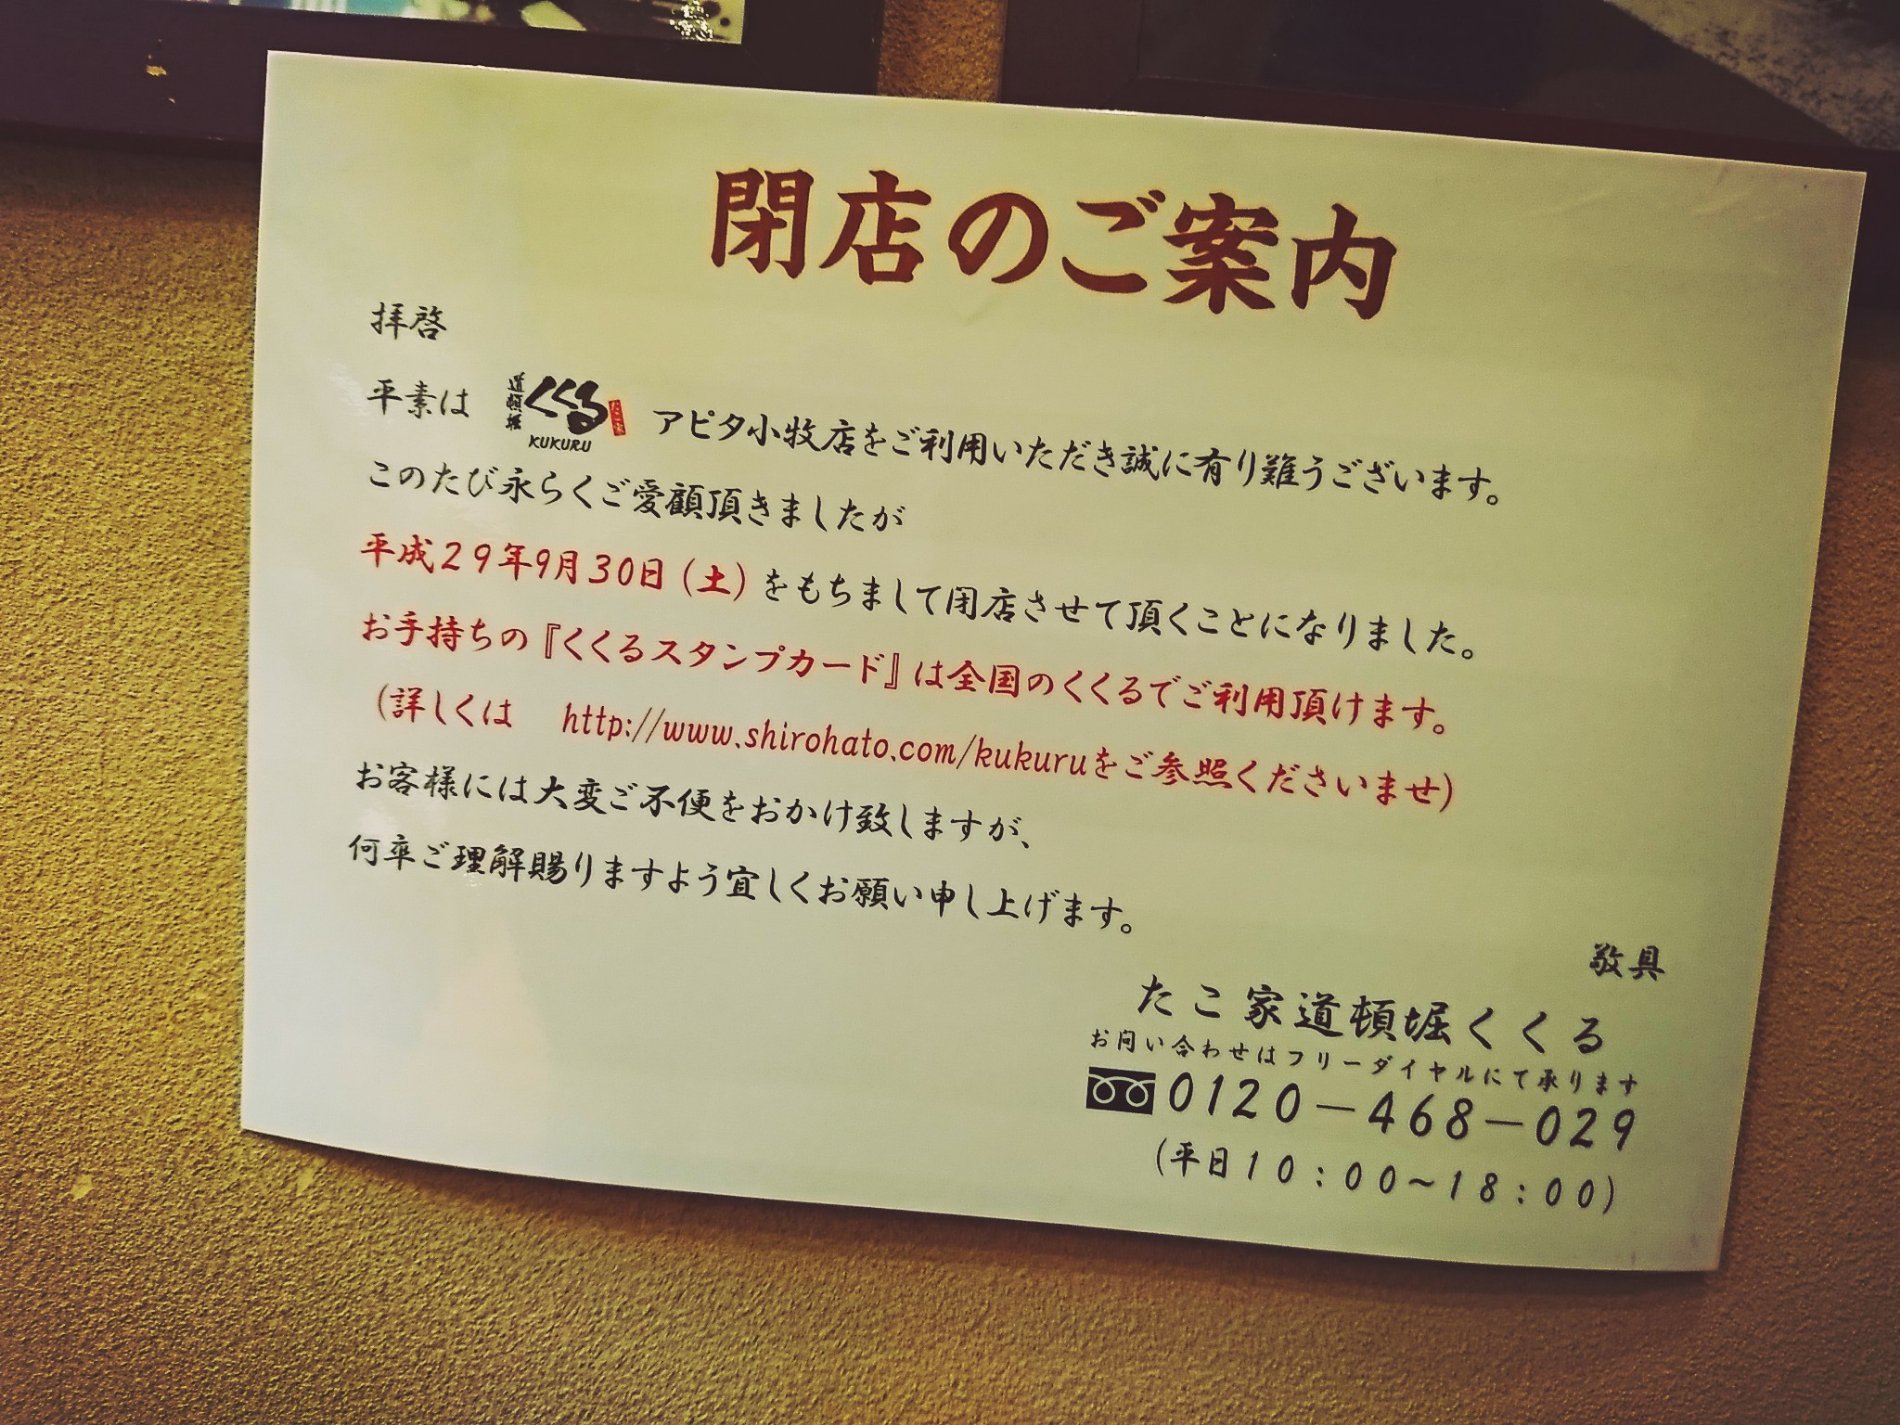 閉店のご案内
拝啓
平素は 道頓堀 くくる たこ家 KUKURU アピタ小牧店をご利用いただき誠に有り難うございます。
このたび永らくご愛顧頂きましたが
平成29年9月30日(土)をもちまして閉店させて頂くことになりました。
お手持ちの『くくるスタンプカード』は全国のくくるでご利用頂けます。
(詳しくは http://www.shirohato.com/kukuruをご参照くださいませ)
お客様には大変ご不便をおかけ致しますが、
何卒ご理解賜りますよう宜しくお願い申し上げます。
敬具
たこ家道頓堀くくる
お問い合わせはフリーダイヤルにて承ります
0120-468-029
(平日10:00~18:00)